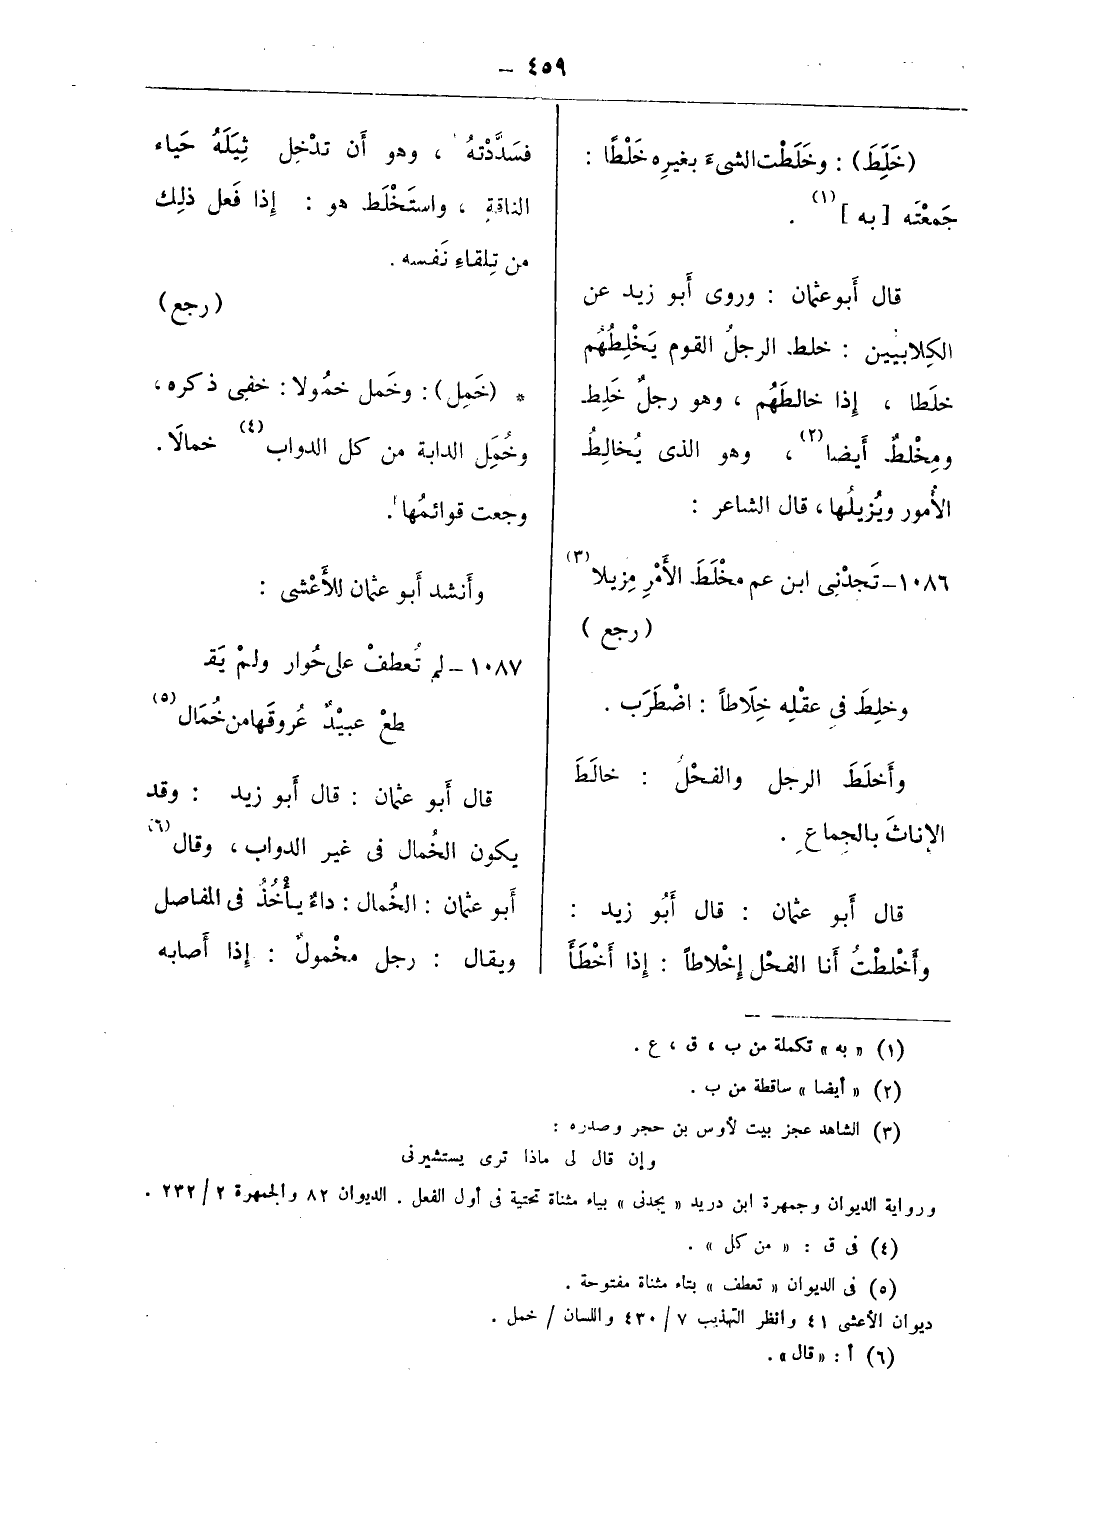 ٤٥٩ –
(خَلَطَ) : وخَلَطْت الشىءَ بغيرِه خَلْطًا :
جَمعْتَه [ به ] (١) .
قال أَبو عثمان : وروى أَبو زيد عن
الكِلابيين : خلط الرجلُ القوم يَخْلِطُهُم
خلَطا ، إِذا خالطَهُم ، وهو رجلٌ خَلِط
ومِخْلطٌ أَيضا (٢) ، وهو الذى يُخالِطُ
الأُمور ويُزيلُها ، قال الشاعر :
١٠٨٦ – تَجدْنِى ابن عم مخْلَطَ الأَمْرِ مِزيلا (٣)
( رجع )
وخلِطَ فى عقْلِه خِلَاطاً : اضْطَرَب .
وأَخلَطَ الرجل والفحْلُ : خالَطَ
الإِناثَ بالجماعِ .
قال أَبو عثمان : قال أَبُو زيد :
وأَخْلطْتُ أَنا الفحْل إِخْلاطاً : إِذا أَخْطَأَ
فسَدَّدْتهُ ، وهو أَن تدْخِل ثِيَلَهُ حَياء
الناقةِ ، واستَخْلَط هو : إِذا فَعل ذلِك
من تِلقاءِ نَفسه .
( رجع )
* (خَمِل) : وخَمل خمُولا : خفِى ذكره ،
وخُمِل الدابة من كل الدواب (٤) خمالَا .
وجعت قوائمُها .
وأَنشد أَبو عثمان للأَعْشى :
١٠٨٧ – لم تُعطفْ على حُوار ولمْ يَقـ
طعْ عبيْدٌ عُروقَها من خُمَال (٥)
قال أَبو عثمان : قال أَبو زيد : وقد
يكون الخُمال فى غير الدواب ، وقال (٦)
أَبو عثمان : الخُمال : داءٌ يأْخُذُ فى المفاصل
ويقال : رجل مخْمولٌ : إِذا أَصابه
(١) « به » تكملة من ب ، ق ، ع .
(٢) « أيضا » ساقطة من ب .
(٣) الشاهد عجز بيت لأوس بن حجر وصدره :
وإن قال لى ماذا ترى يستشيرنى
ورواية الديوان وجمهرة ابن دريد « يجدنى » بياء مثناة تحتية فى أول الفعل . الديوان ٨٢ والجمهرة ٢ / ٢٣٢ .
(٤) فى ق : « من كل » .
(٥) فى الديوان « تعطف » بتاء مثناة مفتوحة .
ديوان الأعشى ٤١ وانظر التهذيب ٧ / ٤٣٠ واللسان / خمل .
(٦) أ : « قال » .